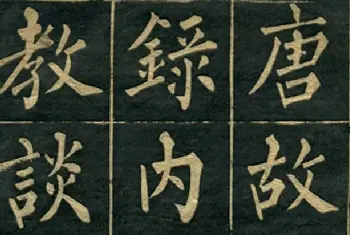 唐故
錄内
教談